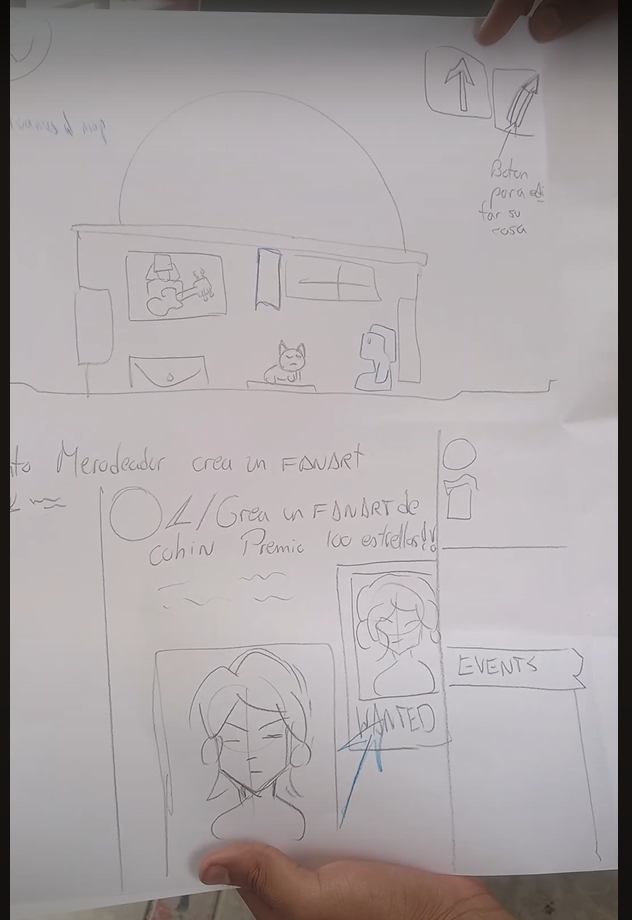 Boton
para edi
tar su
casa
Merodeador crea un FANART
1/Crea un FANART de
Premio 100 estrellas
WANTED
EVENTS